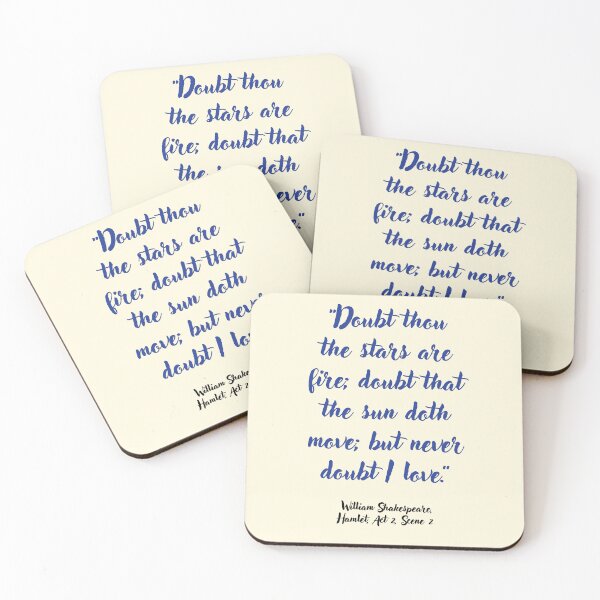 "Doubt thou
the stars are
fire; doubt that
the sun doth
never
"Doubt thou
the stars are
fire; doubt that
the sun doth
move; but never
doubt I love."
"Doubt thou
the stars are
fire; doubt that
the sun doth
move; but
doubt I
William
Hamlet, Act
"Doubt thou
the stars are
fire; doubt that
the sun doth
move; but never
doubt I love."
William Shakespeare,
Hamlet, Act 2, Scene 2